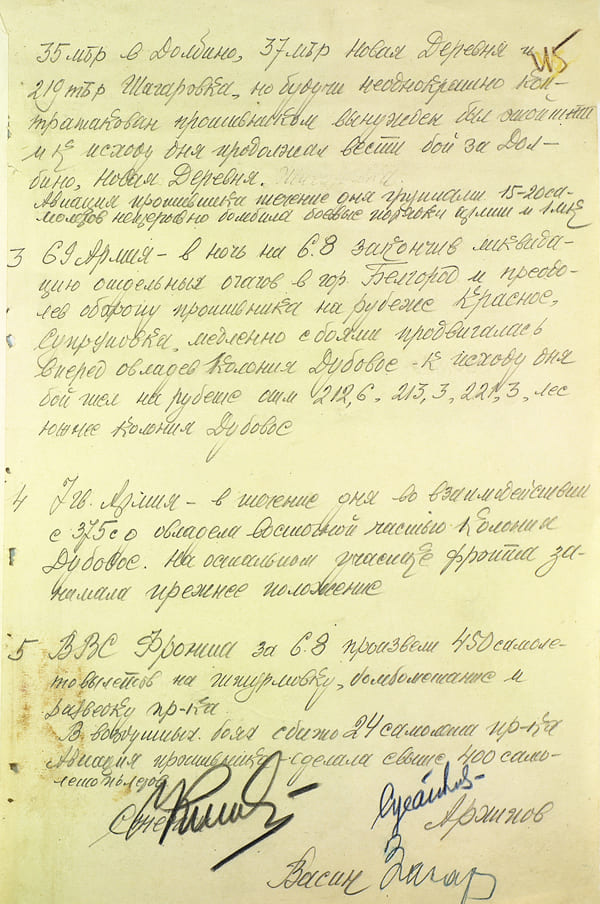 35 мтр в Долбино, 37 мтр Новая Деревня и
219 тбр Шагаровка, но будучи неоднократно кон-
тратакован противником вынужден был отойти
и к исходу дня продолжал вести бой за Дол-
бино, Новая Деревня.
Авиация противника течение дня группами 15-20 са-
молетов непрерывно бомбила боевые порядки армии и 1 мк
3 69 Армия – в ночь на 6.8 закончив ликвида-
цию отдельных очагов в гор. Белгород и преодо-
лев оборону противника на рубеже Красное,
Супруновка, медленно с боями продвигалась
вперед овладев Колония Дубовое – к исходу дня
бой шел на рубеже отм 212,6, 213,3, 221,3, лес
южнее Колония Дубовое
4 7 гв. Армия – в течение дня во взаимодействии
с 375 сд овладела восточной частью Колонии
Дубовое. На остальном участке фронта за-
нимала прежнее положение
5 ВВС Фронта за 6.8 произвели 450 самоле-
товылетов на штурмовку, бомбометание и
разведку пр-ка
В воздушных боях сбито 24 самолета пр-ка
Авиация противника сделала свыше 400 само-
летопролетов
Архипов
Васин